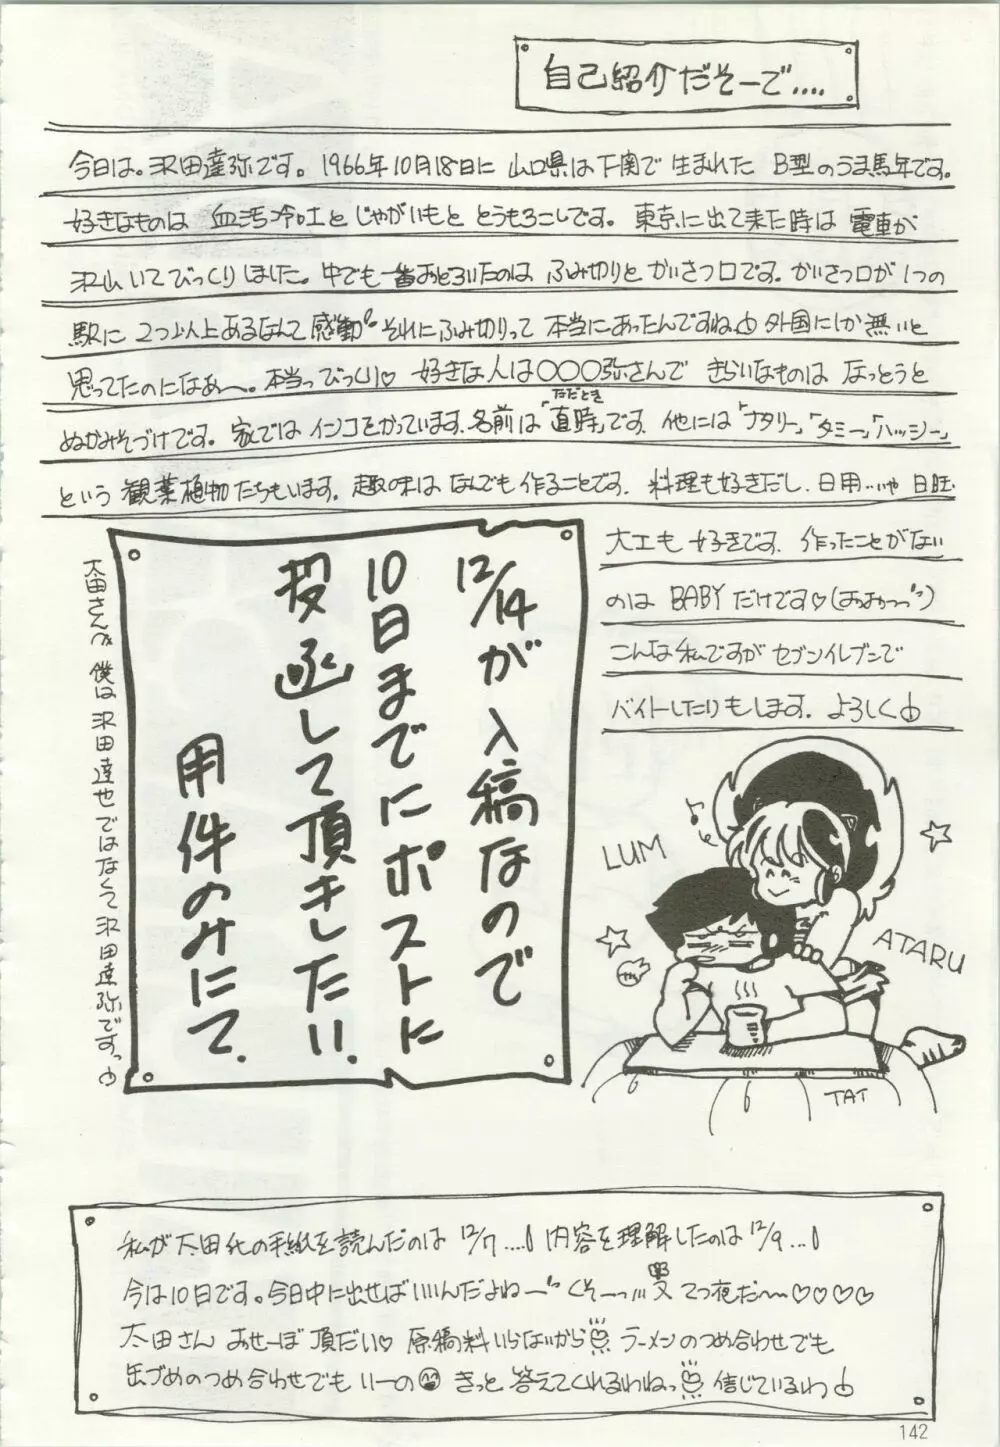 自己紹介だそーで....
今日は。沢田達弥です。1966年10月18日に 山口県は下関で 生まれた B型のうま馬年です。
好きなものは 血汚冷吐と じゃがいもと とうもろこしです。東京に出て来た時は 電車が
沢山いてびっくりしました。中でも一番おどろいたのは ふみ切りと かいさつ口です。かいさつ口が1つの
駅に 2つ以上あるなんて 感動〃それにふみ切りって 本当にあったんですね 外国にしか無いと
思ってたのになぁ〜。本当っびっくり♡ 好きな人は〇〇〇弥さんで きらいなものは なっとうと
ぬかみそづけです。家では インコをかっています。名前は「直時」です。他には「ナタリー」「タミー」「ハッシー」
ただとき
という 観葉植物たちもいます。趣の味は なんでも作ることです。料理も好きだし、日用…いや 日旺
大工も 好きです。作ったことがない
のは BABYだけです♡(まっまかっつ〃)
こんな私ですが セブンイレブンで
バイトしたりもします。よろしく
12/14が入稿なので
10日までにポストに
投函して頂きしたい。
用件のみにて.
太田さんへ 僕は 沢田達也ではなくて 沢田達弥です。
LUM
ATARU
TAT
私が太田氏の手紙を読んだのは 12/7....! 内容を理解したのは 12/9...!
今は10日です。今日中に出せばいいんだよねー〃 くそーっ!!! 又 てつ夜だ〜♡♡♡♡
太田さん おせーぼ 頂だい♡ 原稿料いらないから ラーメンのつめ合わせでも
缶づめのつめ合わせでも いーの きっと 答えてくれるわねっ 信じているわ
142